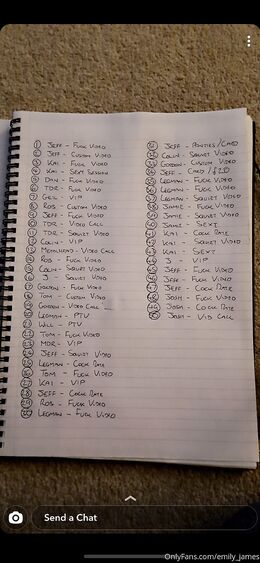 1 Jeff - Fuck Video
2 Jeff - Custom Video
3 Kai - Fuck Video
4 Kai - Sext Session
5 Dan - Fuck Video
6 Tor - Fuck Video
7 Geil - VIP
8 Ros - Custom Video
9 Jeff - Fuck Video
10 Tor - Video Call
11 Tor - Squirt Video
12 Colin - VIP
13 - Video Call
14 Rob - Fuck Video
15 Colin - Squirt Video
16 J - Squirt Video
17 Gordon - Fuck Video
18 Tom - Custom Video
19 Gordon - Video Call
20 Legman - PTV
21 Will - PTV
22 Tom - Fuck Video
23 Mor - VIP
24 Jeff - Squirt Video
25 Legman - Cock Rate
26 Tom - Fuck Video
27 Kai - VIP
28 Jeff - Cock Rate
29 Rob - Fuck Video
30 Legman - Fuck Video
31 Jeff - Panties / Card
32 Colin - Squirt Video
33 Gordon - Custom Video
34 Jeff - Card
35 Legman - Fuck Video
36 Legman - Fuck Video
37 Legman - Squirt Video
38 Jamie - Fuck Video
39 Jamie - Squirt Video
40 Jamie - Sext
41 Kai - Cock Rate
42 Kai - Squirt Video
43 Kai - Sext
44 J - VIP
45 Jeff - Fuck Video
46 Jeff - Fuck Video
47 Jeff - Cock Rate
48 Josh - Fuck Video
49 Josh - Cock Rate
50 Josh - Vid Call
Send a Chat
OnlyFans.com/emily_james